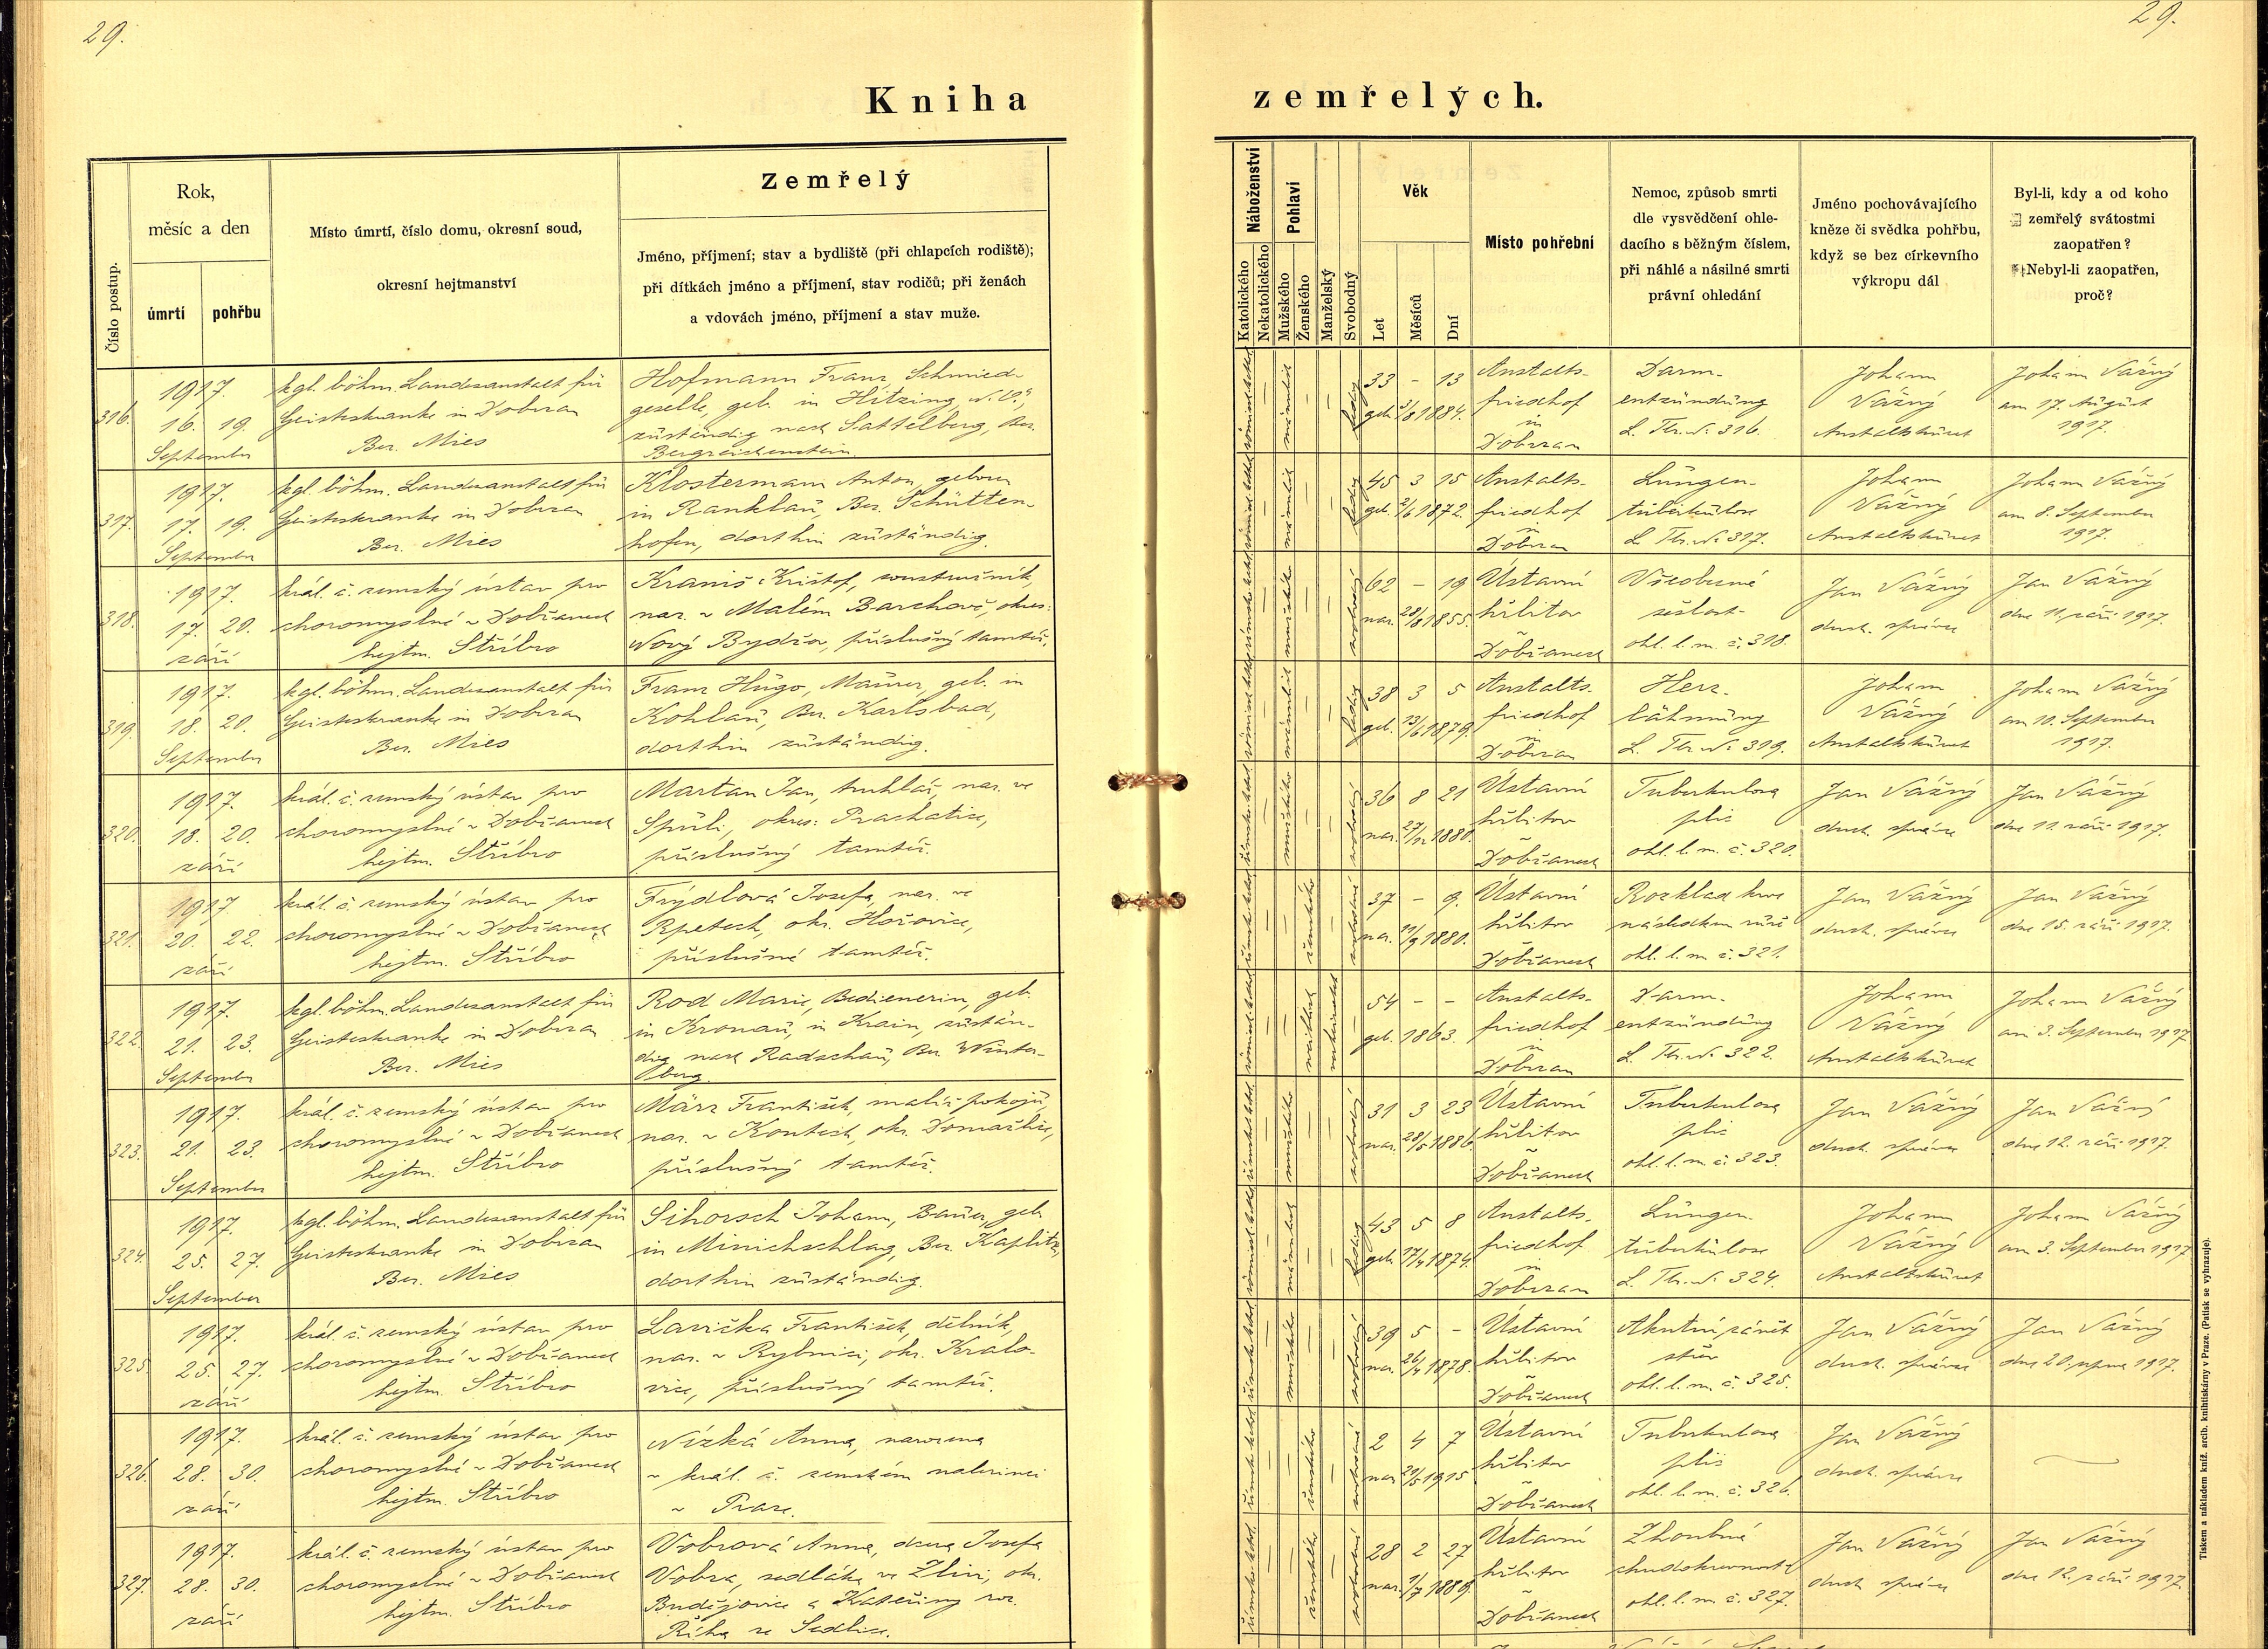 29.
29.
Kniha zemřelých.
Číslo postup.
Rok,
měsíc a den
úmrtí
pohřbu
Místo úmrtí, číslo domu, okresní soud,
okresní hejtmanství
Zemřelý
Jméno, příjmení; stav a bydliště (při chlapcích rodiště);
při dítkách jméno a příjmení, stav rodičů; při ženách
a vdovách jméno, příjmení a stav muže.
Náboženství
Katolického
Nekatolického
Pohlaví
Mužského
Ženského
Manželský
Svobodný
Věk
Let
Měsíců
Dní
Místo pohřební
Nemoc, způsob smrti
dle vysvědčení ohle-
dacího s běžným číslem,
při náhlé a násilné smrti
právní ohledání
Jméno pochovávajícího
kněze či svědka pohřbu,
když se bez církevního
výkropu dál
Byl-li, kdy a od koho
zemřelý svátostmi
zaopatřen?
Nebyl-li zaopatřen,
proč?
316.
1917.
16. 19.
September
kgl. böhm. Landesanstalt für
Geisteskranke in Dobrzan
Bez. Mies
Hofmann Franz, Schmied-
geselle, geb. in Hitzing, N. Ö.,
zuständig nach Sattelberg, Bez.
Bergreichenstein.
männlich
ledig
33 – 13
geb. 3/8 1884.
Anstalts-
friedhof
in
Dobrzan
Darm-
entzündung
L. Tb. N. 316.
Johann
Vážný
Anstaltskurat
Johann Vážný
am 17. August
1917.
317.
1917.
17. 19.
September
kgl. böhm. Landesanstalt für
Geisteskranke in Dobrzan
Bez. Mies
Klostermann Anton, geboren
in Ranklau, Bez. Schütten-
hofen, dorthin zuständig.
männlich
ledig
45 3 15
geb. 2/6 1872.
Anstalts-
friedhof
in
Dobrzan
Lungen-
tuberkulose
L. Tb. N. 317.
Johann
Vážný
Anstaltskurat
Johann Vážný
am 8. September
1917.
318.
1917.
17. 20.
září
král. č. zemský ústav pro
choromyslné v Dobřanech
hejtm. Stříbro
Kraniš Kristof, soustružník,
nar. v Malém Barchově, okres:
Nový Bydžov, příslušný tamtéž.
mužského
svobodný
62 – 19
nar. 28/8 1855.
Ústavní
hřbitov
v
Dobřanech
Všeobecná
sešlost
ohl. l. m. č. 318.
Jan Vážný
duch. správce
Jan Vážný
dne 11. září 1917.
319.
1917.
18. 20.
September
kgl. böhm. Landesanstalt für
Geisteskranke in Dobrzan
Bez. Mies
Franz Hugo, Maurer, geb. in
Kohlau, Bez. Karlsbad,
dorthin zuständig.
männlich
ledig
38 3 5
geb. 13/6 1879.
Anstalts-
friedhof
in
Dobrzan
Herz-
lähmung
L. Tb. N. 319.
Johann
Vážný
Anstaltskurat
Johann Vážný
am 10. September
1917.
320.
1917.
18. 20.
září
král. č. zemský ústav pro
choromyslné v Dobřanech
hejtm. Stříbro
Martan Jan, truhlář, nar. ve
Spůli, okres: Prachatice,
příslušný tamtéž.
mužského
svobodný
36 8 21
nar. 27/12 1880.
Ústavní
hřbitov
v
Dobřanech
Tuberkulosa
plic
ohl. l. m. č. 320.
Jan Vážný
duch. správce
Jan Vážný
dne 11. září 1917.
321.
1917
20. 22.
září
král. č. zemský ústav pro
choromyslné v Dobřanech
hejtm. Stříbro
Frýdlová Josefa, nar. ve
Rpetech, okr. Hořovice,
příslušná tamtéž.
ženského
svobodná
37 – 9.
nar. 11/9 1880.
Ústavní
hřbitov
v
Dobřanech
Rozklad krve
následkem růže
ohl. l. m. č. 321.
Jan Vážný
duch. správce
Jan Vážný
dne 15. září 1917.
322.
1917.
21. 23.
September
kgl. böhm. Landesanstalt für
Geisteskranke in Dobrzan
Bez. Mies
Rod Marie, Bedienerin, geb.
in Kronau, in Krain, zustän-
dig nach Radschau, Bez. Winter-
berg.
weiblich
verheiratet
54 – –
geb. 1863.
Anstalts-
friedhof
in
Dobrzan
Darm-
entzündung
L. Tb. N. 322.
Johann
Vážný
Anstaltskurat
Johann Vážný
am 3. September 1917
323.
1917.
21. 23.
September
král. č. zemský ústav pro
choromyslné v Dobřanech
hejtm. Stříbro
März František, malíř pokojů,
nar. v Koutech, okr. Domažlice,
příslušný tamtéž.
mužského
svobodný
31 3 23
nar. 28/5 1886.
Ústavní
hřbitov
v
Dobřanech
Tuberkulosa
plic
ohl. l. m. č. 323.
Jan Vážný
duch. správce
Jan Vážný
dne 12. září 1917.
324.
1917.
25. 27.
September
kgl. böhm. Landesanstalt für
Geisteskranke in Dobrzan
Bez. Mies
Sihorsch Johann, Bauer, geb.
in Minichschlag, Bez. Kaplitz,
dorthin zuständig.
männlich
ledig
43 5 8
geb. 17/4 1874.
Anstalts-
friedhof
in
Dobrzan
Lungen-
tuberkulose
L. Tb. N. 324.
Johann
Vážný
Anstaltskurat
Johann Vážný
am 3. September 1917
325.
1917.
25. 27.
září
král. č. zemský ústav pro
choromyslné v Dobřanech
hejtm. Stříbro
Lavička František, dělník,
nar. v Rybnici, okr. Kralo-
vice, příslušný tamtéž.
mužského
svobodný
39 5 –
nar. 26/4 1878.
Ústavní
hřbitov
v
Dobřanech
Akutní zánět
střev
ohl. l. m. č. 325.
Jan Vážný
duch. správce
Jan Vážný
dne 20. srpna 1917.
326.
1917.
28. 30.
září
král. č. zemský ústav pro
choromyslné v Dobřanech
hejtm. Stříbro
Nízká Anna, narozena
v král. č. zemském nalezinci
v Praze.
ženského
svobodná
2 4 7
nar. 21/5 1915
Ústavní
hřbitov
v
Dobřanech
Tuberkulosa
plic
ohl. l. m. č. 326.
Jan Vážný
duch. správce
327.
1917.
28. 30.
září
král. č. zemský ústav pro
choromyslné v Dobřanech
hejtm. Stříbro
Vobrová Anna, dcera Josefa
Vobra, sedláka ve Zlivi, okr.
Budějovice a Kateřiny roz.
Říha ze Sedlice.
ženského
svobodná
28 2 27
nar. 1/7 1889.
Ústavní
hřbitov
v
Dobřanech
Zhoubná
chudokrevnost
ohl. l. m. č. 327.
Jan Vážný
duch. správce
Jan Vážný
dne 12. září 1917.
Tiskem a nákladem kníž. arcib. knihtiskárny v Praze. (Patisk se vyhrazuje).